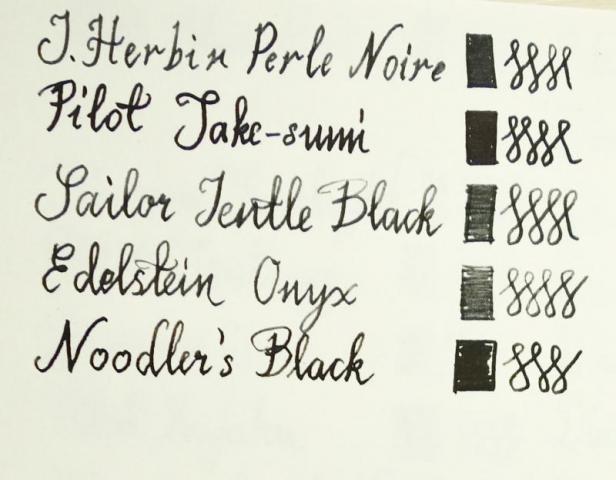 J.Herbin Perle Noire
Pilot Take-sumi
Sailor Jentle Black
Edelstein Onyx
Noodler's Black